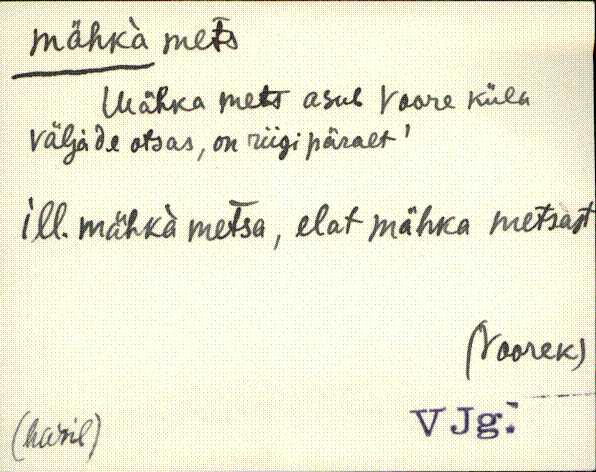 mähkà mets
Mähka mets asub Voore küla
väljade otsas, on riigi päralt'
ill. mähkà metsa, elat mähka metsast
(Voorek)
VJg.
(haril)